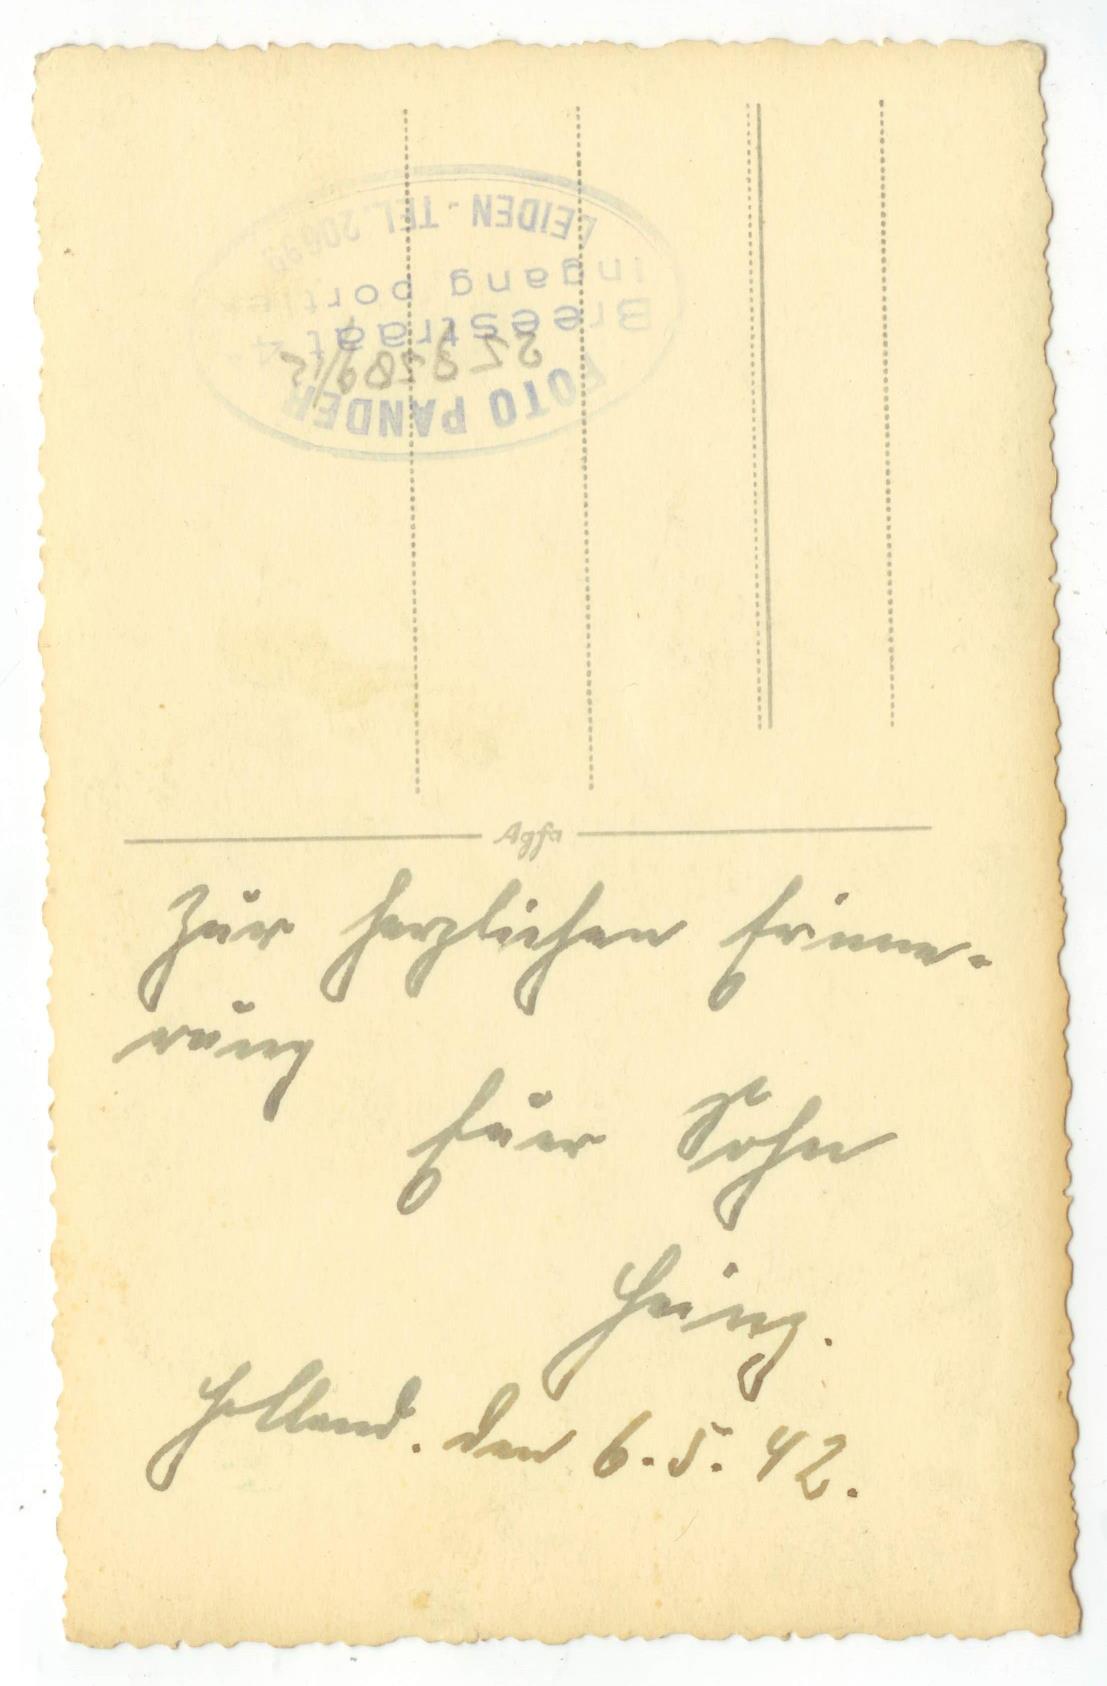 FOTO PANDER
Breestraat 4
ingang portie
LEIDEN - TEL. 20695
Agfa
Zur herzlichen Erinne-
rung
Euer Sohn
Heinz.
Holland. den 6.5.42.